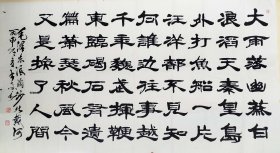 大雨落幽燕白
浪滔天秦皇島
外打魚船一片
汪洋都不見知
向誰邊往事越
千年魏武揮鞭
東臨碣石有遺
篇蕭瑟秋風今
又是換了人間
毛澤東浪淘沙北戴河